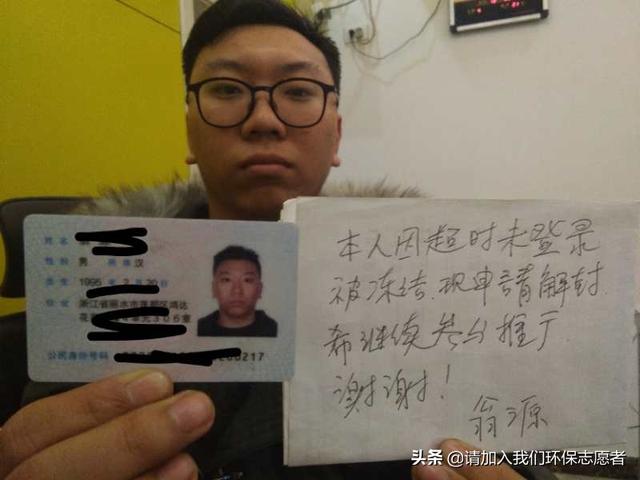 姓名
性别 男 民族 汉
出生 1995 年 2 月 20 日
住址 浙江省丽水市莲都区鸿达
306室
公民身份号码 0217
本人因超时未登录
被冻结,现申请解封
希继续 推广
谢谢!
翁源
头条 @请加入我们环保志愿者